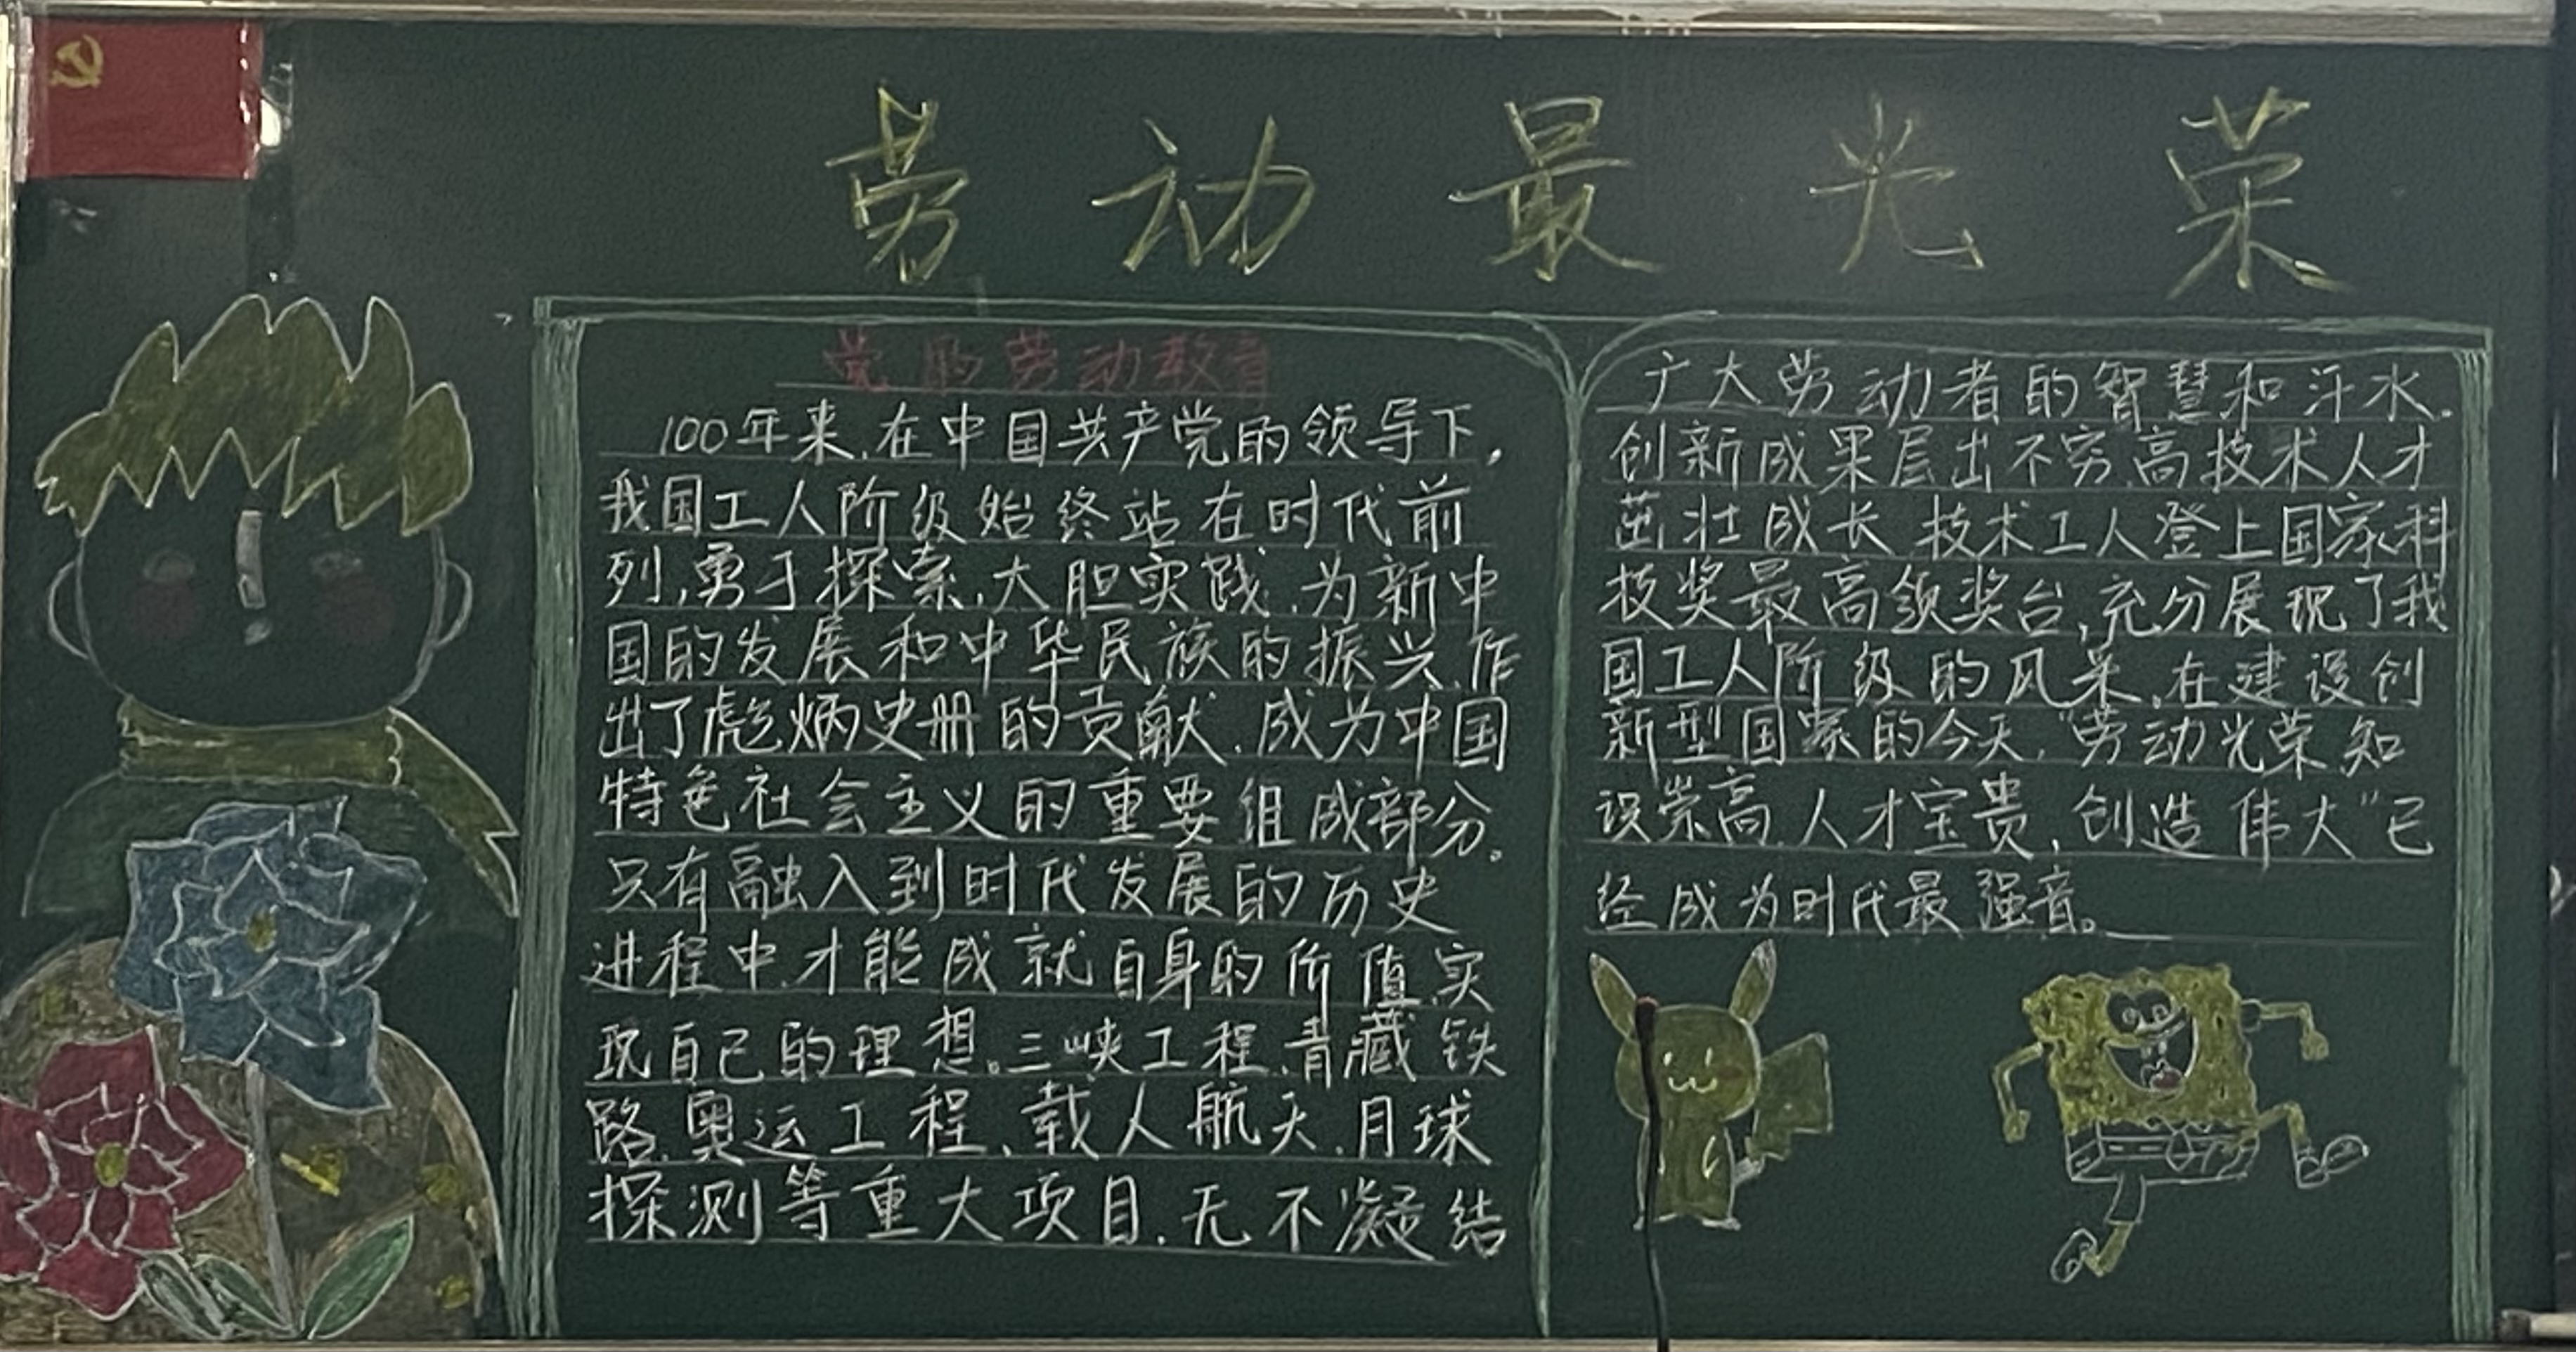 劳动最光荣
党的劳动教育
100年来,在中国共产党的领导下,
我国工人阶级始终站在时代前
列,勇于探索,大胆实践,为新中
国的发展和中华民族的振兴,作
出了彪炳史册的贡献,成为中国
特色社会主义的重要组成部分。
只有融入到时代发展的历史
进程中,才能成就自身的价值,实
现自己的理想。三峡工程、青藏铁
路、奥运工程、载人航天、月球
探测等重大项目,无不凝结
广大劳动者的智慧和汗水.
创新成果层出不穷,高技术人才
茁壮成长,技术工人登上国家科
技奖最高领奖台,充分展现了我
国工人阶级的风采.在建设创
新型国家的今天,“劳动光荣,知
识崇高,人才宝贵,创造伟大”已
经成为时代最强音。